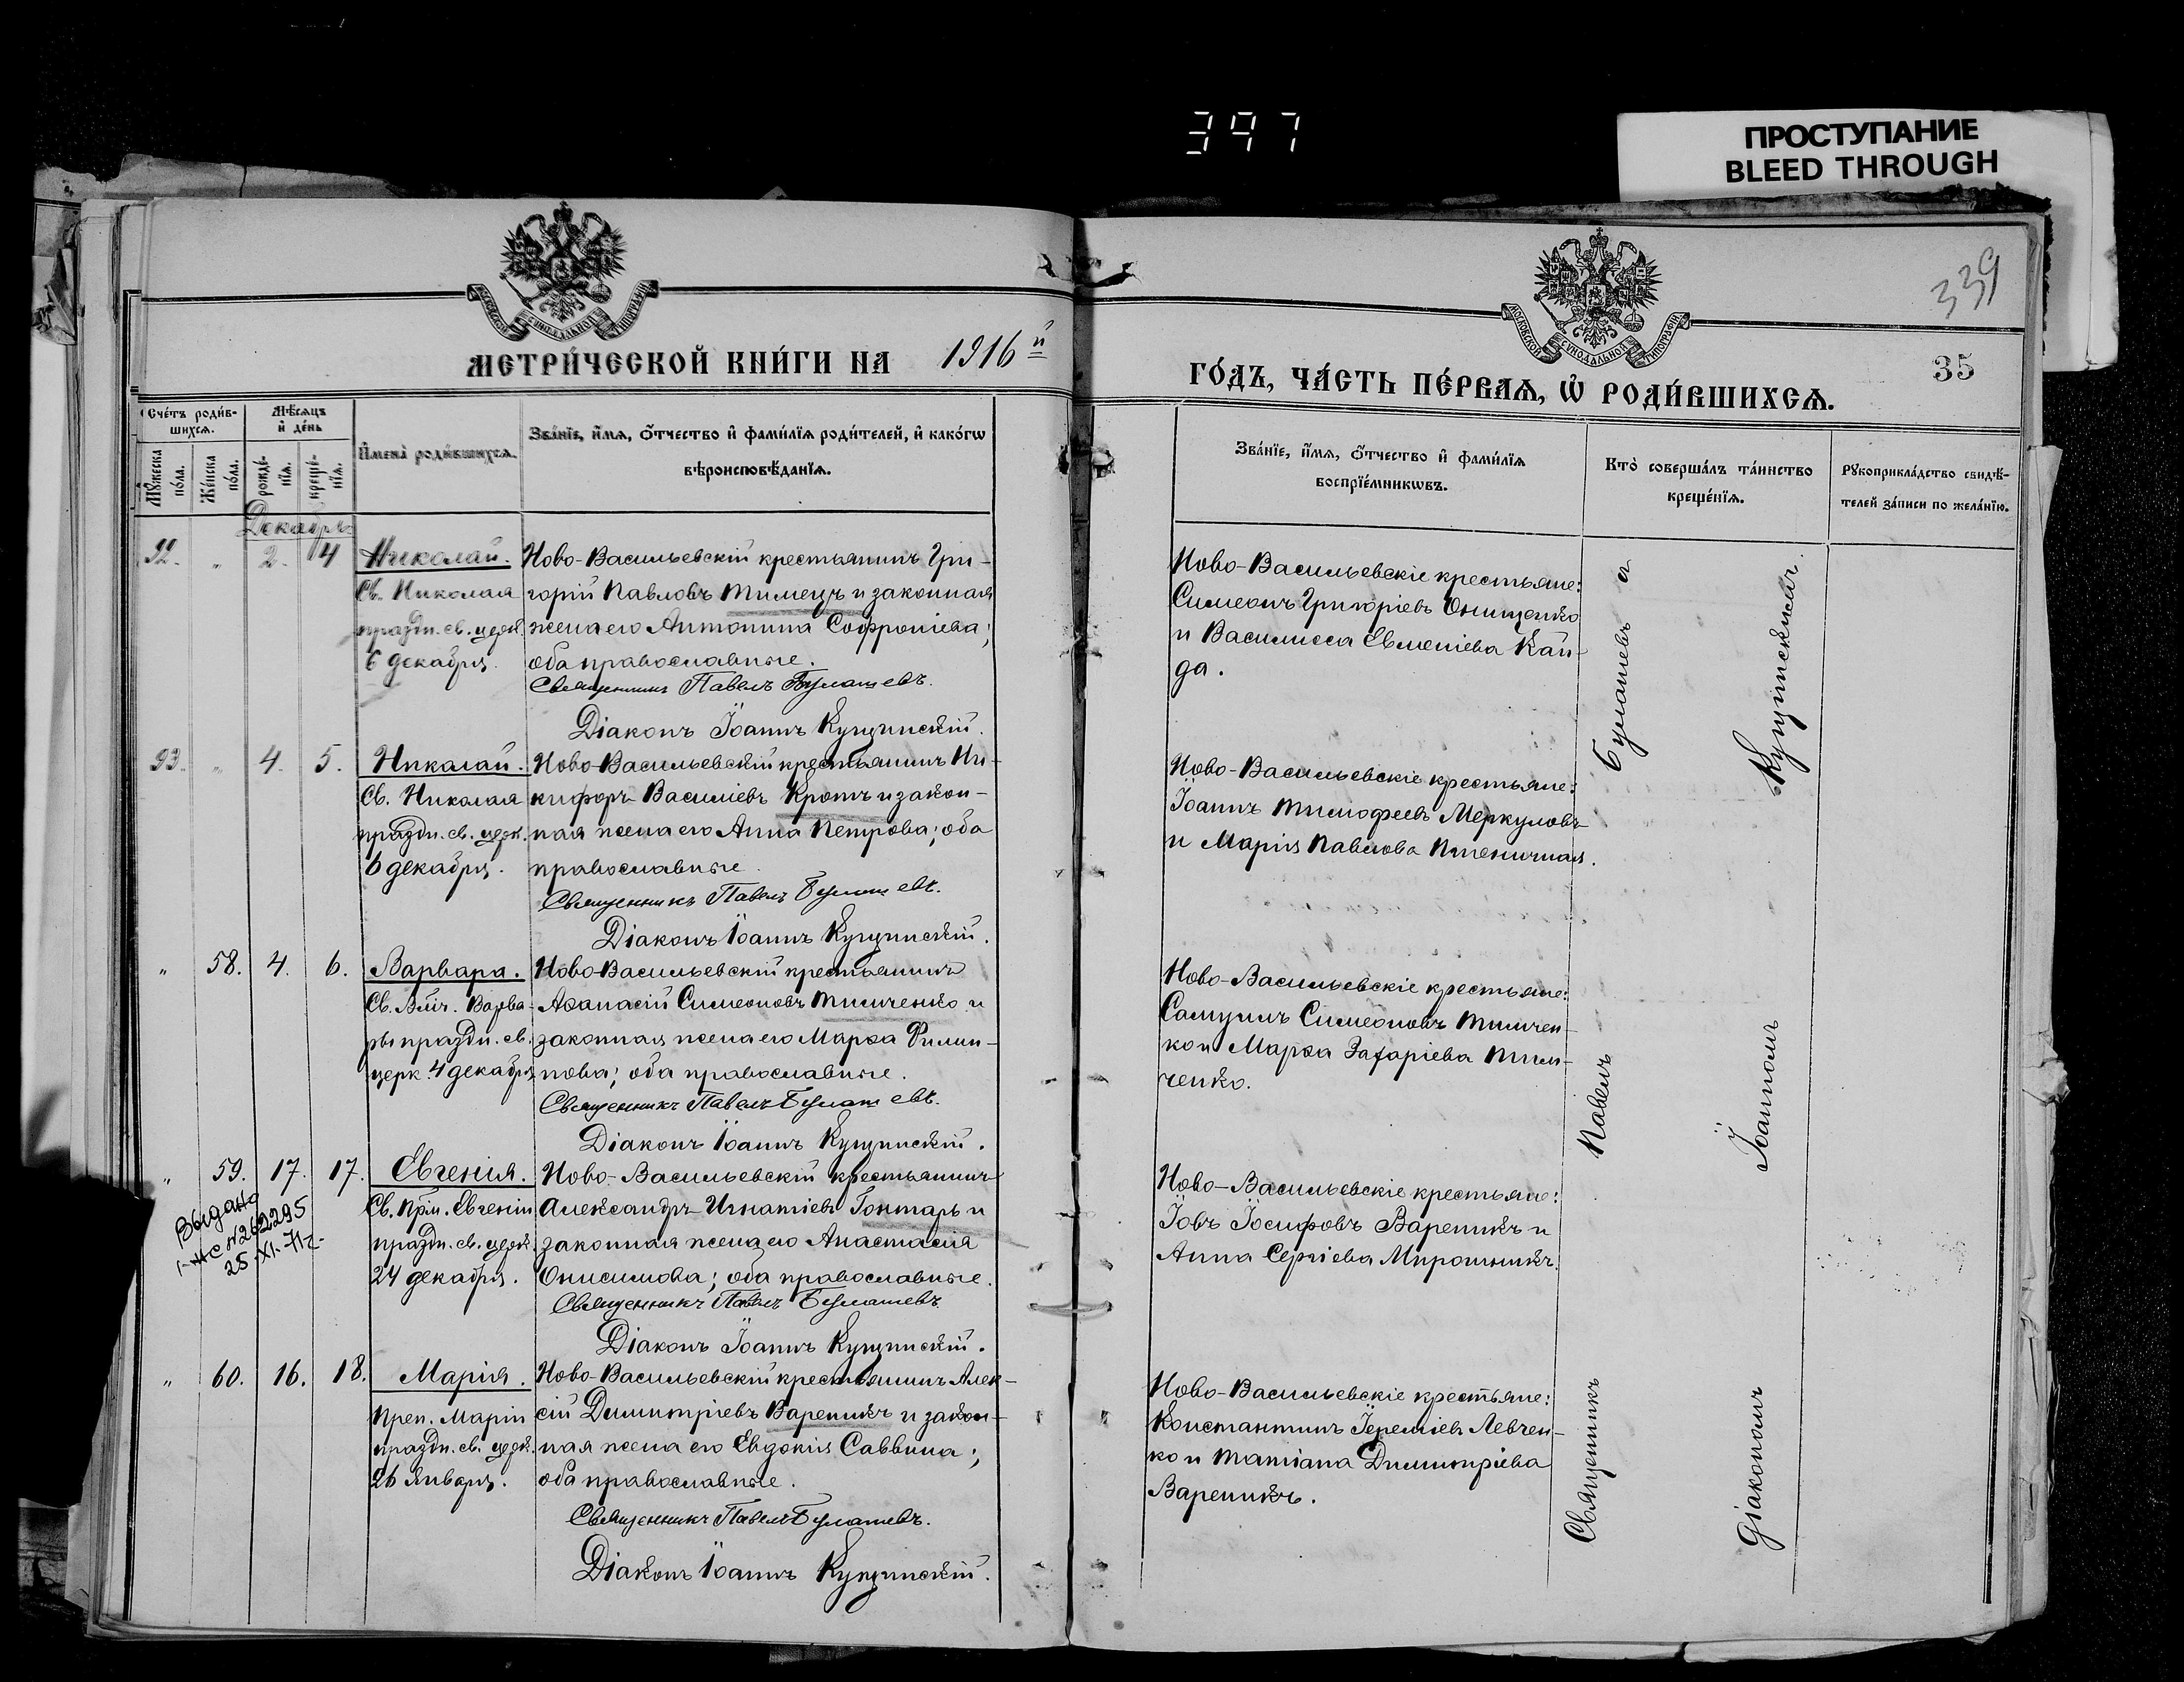 397
ПРОСТУПАНИЕ
BLEED THROUGH
339
35
МОСКОВСКОЙ СѴНОДАЛЬНОЙ ТИПОГРАФІИ
МОСКОВСКОЙ СѴНОДАЛЬНОЙ ТИПОГРАФІИ
МЕТРИ́ЧЕСКОЙ КНИ́ГИ НА 1916й
ГО́ДЪ, ЧА́СТЬ ПЕ́РВАѦ, Ѽ РОДИ́ВШИХСѦ.
Сче́тъ роди́в-
шихсѧ.
Мꙋ́жеска
по́ла.
Же́нска
по́ла.
Мѣ́сѧцъ
и҆ де́нь
рожде́-
нїѧ.
креще́-
нїѧ.
И҆мена̀ роди́вшихсѧ.
Зва́нїе, и҆́мѧ, ѻ҆́тчество и҆ фами́лїѧ роди́телей, и҆ како́гѡ
вѣроисповѣ́данїѧ.
Зва́нїе, и҆́мѧ, ѻ҆́тчество и҆ фами́лїѧ
воспрїе́мникѡвъ.
Кто̀ соверша́лъ та́инство
креще́нїѧ.
Рꙋкоприкла́дство свидѣ́-
телей за́писи по жела́нїю.
Декабрь
92. „ 2. 4 Николай.
Св. Николая
праздн. св. церк.
6 декабря.
Ново-Васильевскій крестьянинъ Гри-
горій Павловъ Тимецъ и законная
жена его Антонина Софроніева;
оба православные.
Священникъ Павелъ Булашевъ.
Діаконъ Іоаннъ Кущинскій.
Ново-Васильевскіе крестьяне:
Симеонъ Григоріевъ Онищенко
и Василисса Евменіева Кан-
да.
93. „ 4. 5. Николай.
Св. Николая
праздн. св. церк.
6 декабря.
Ново-Васильевскій крестьянинъ Ни-
кифоръ Василіевъ Кротъ и закон-
ная жена его Анна Петрова; оба
православные.
Священникъ Павелъ Булашевъ.
Діаконъ Іоаннъ Кущинскій.
Ново-Васильевскіе крестьяне:
Іоаннъ Тимофеевъ Меркуловъ
и Марія Павлова Пшеничная.
„ 58. 4. 6. Варвара.
Св. Влмч. Варва-
ры праздн. св.
церк. 4 декабря
Ново-Васильевскій крестьянинъ
Аѳанасій Симеоновъ Тимченко и
законная жена его Марѳа Филип-
пова; оба православные.
Священникъ Павелъ Булашевъ.
Діаконъ Іоаннъ Кущинскій.
Ново-Васильевскіе крестьяне:
Самуилъ Симеоновъ Тимчен-
ко и Марѳа Захаріева Тим-
ченко.
„ 59. 17. 17. Евгенія.
Св. Прм. Евгеніи
праздн. св. церк.
24 декабря.
Выдано
I-ЖС №262295
25-XI-71г.
Ново-Васильевскій крестьянинъ
Александръ Игнатіевъ Гонтарь и
законная жена его Анастасія
Онисимова; оба православные.
Священникъ Павелъ Булашевъ
Діаконъ Іоаннъ Кущинскій.
Ново-Васильевскіе крестьяне:
Іовъ Іосифовъ Вареникъ и
Анна Сергіева Мирошникъ.
„ 60. 16. 18. Марія.
Преп. Маріи
праздн. св. церк.
26 января.
Ново-Васильевскій крестьянинъ Алек-
сій Димитріевъ Вареникъ и закон-
ная жена его Евдокія Саввина;
оба православные.
Священникъ Павелъ Булашевъ.
Діаконъ Іоаннъ Кущинскій.
Ново-Васильевскіе крестьяне:
Константинъ Іереміевъ Левчен-
ко и Татіана Димитріева
Вареникъ.
Священникъ Павелъ Булашевъ с
діакономъ Іоанномъ Кущинскимъ.